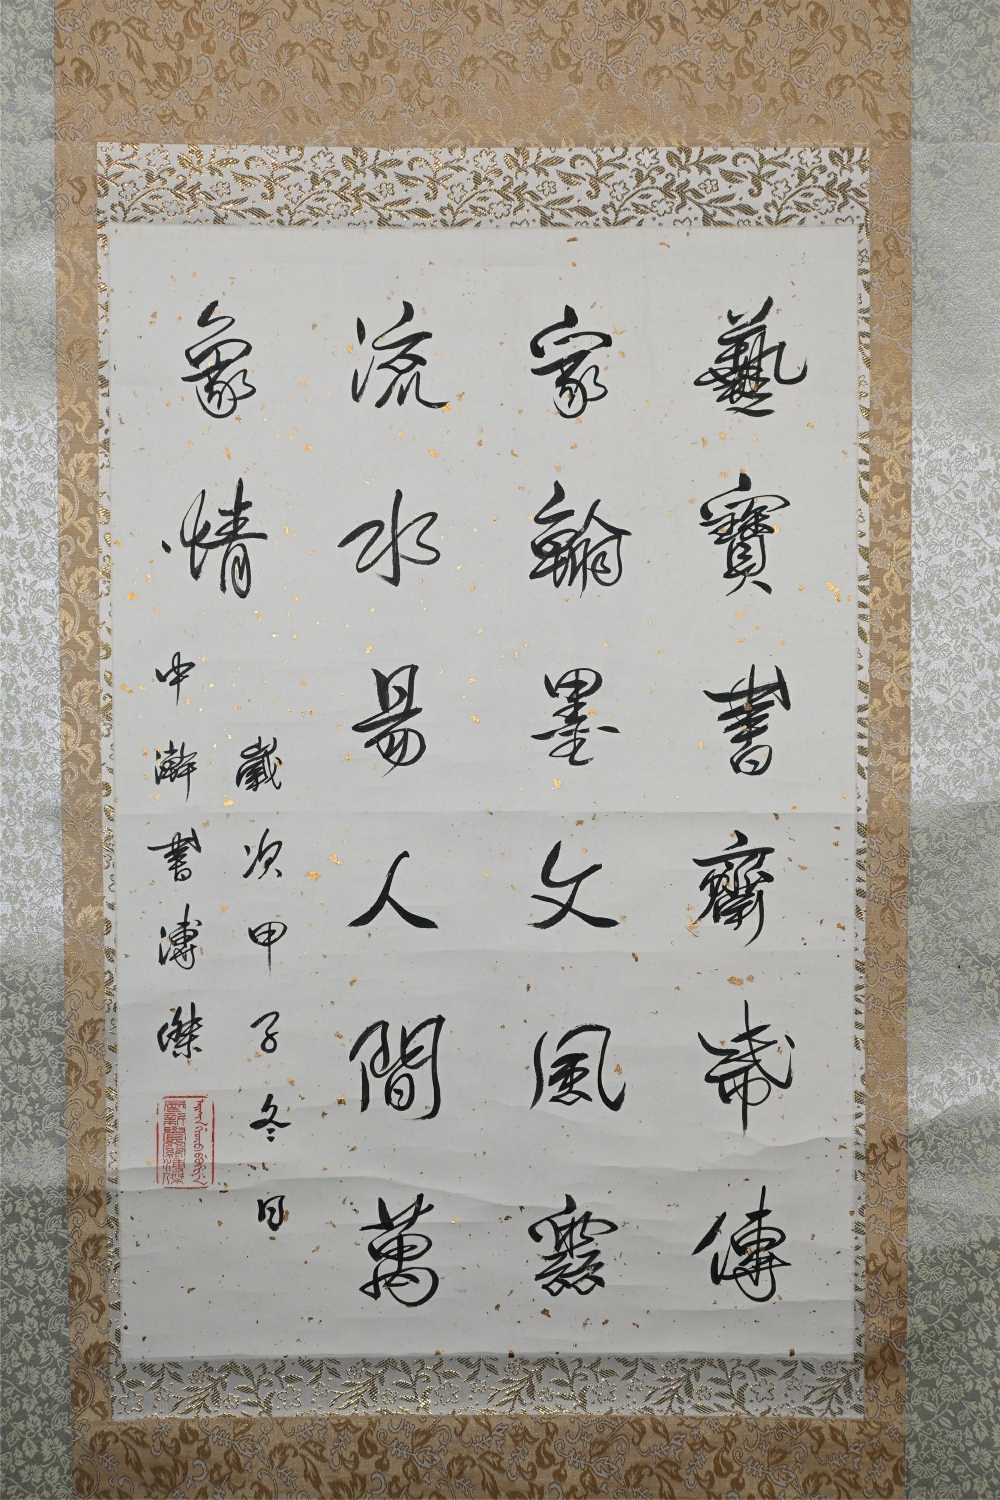 藝寶書齋傳
家翰墨文風
流水易人間萬
象情
歲次甲子冬日
中書溥傑